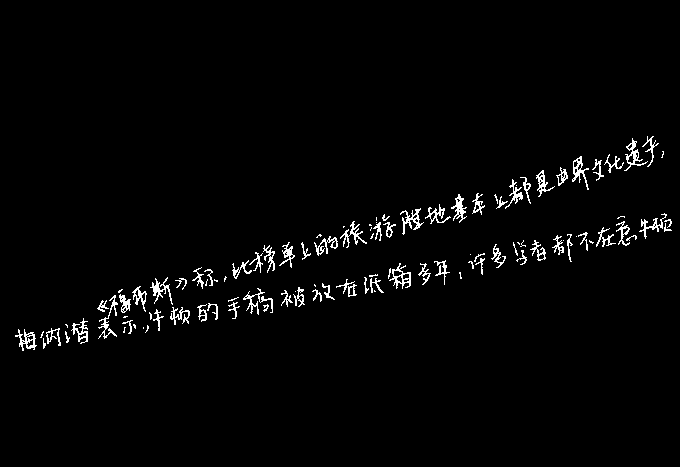 《福布斯》称,比榜单上的旅游胜地基本上都是世界文化遗产,
梅纳潜表示,牛顿的手稿被放在纸箱多年,许多学者都不在意牛顿